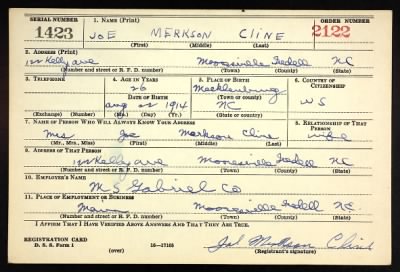 SERIAL NUMBER 1. NAME (Print) ORDER NUMBER
1423 JOE MERKSON CLINE 2122
(First) (Middle) (Last)
2. ADDRESS (Print)
Kelly ave Mooresville Iredell NC
(Number and street or R. F. D. number) (Town) (County) (State)
3. TELEPHONE 4. AGE IN YEARS 5. PLACE OF BIRTH 6. COUNTRY OF CITIZENSHIP
26 Mecklenburg
DATE OF BIRTH (Town or county)
Aug 22 1914 NC U S
(Exchange) (Number) (Mo.) (Day) (Yr.) (State or country)
7. NAME OF PERSON WHO WILL ALWAYS KNOW YOUR ADDRESS 8. RELATIONSHIP OF THAT PERSON
Mrs Joe Markson Cline wife
(Mr., Mrs., Miss) (First) (Middle) (Last)
9. ADDRESS OF THAT PERSON
Kelly ave Mooresville Iredell NC
(Number and street or R. F. D. number) (Town) (County) (State)
10. EMPLOYER'S NAME
M S Gabriel Co
11. PLACE OF EMPLOYMENT OR BUSINESS
Main Mooresville Iredell NC
(Number and street or R. F. D. number) (Town) (County) (State)
I AFFIRM THAT I HAVE VERIFIED ABOVE ANSWERS AND THAT THEY ARE TRUE.
REGISTRATION CARD
D. S. S. Form 1 (over) 16—17105 (Registrant's signature)